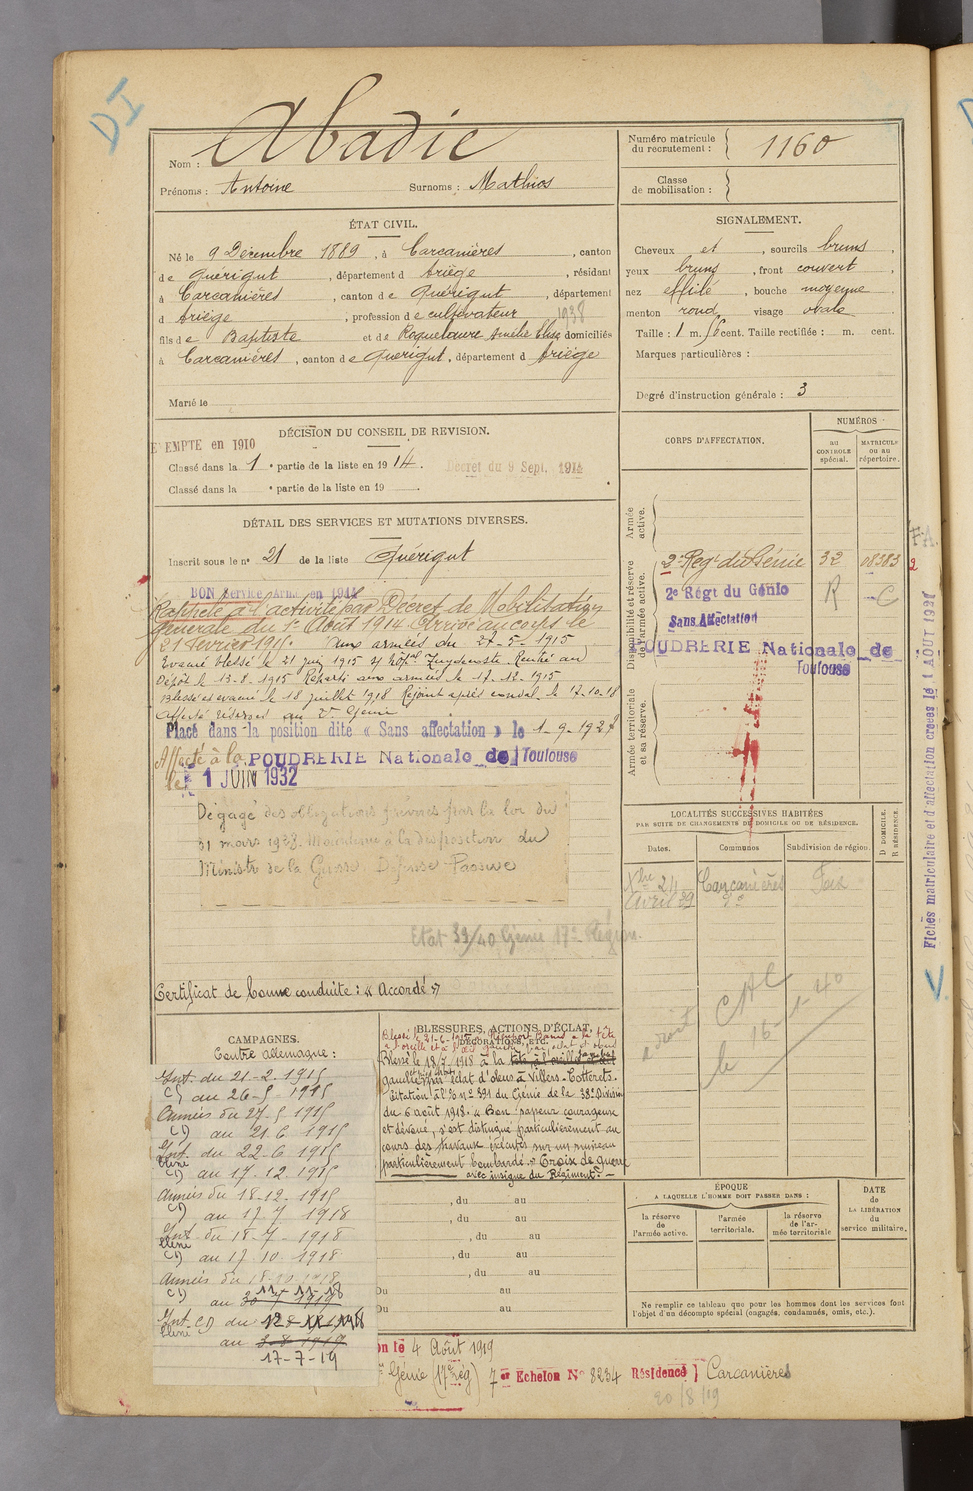 DI
Nom : Abadie
Prénoms : Antoine Surnoms : Mathios
Numéro matricule du recrutement : 1160
Classe de mobilisation :
ÉTAT CIVIL.
Né le 9 Décembre 1889, à Carcanières, canton
de Quérigut, département d Ariège, résidant
à Carcanières, canton de Quérigut, département
d Ariège, profession de cultivateur
1938
fils de Baptiste et de Roquelaure Amélie Elise domiciliés
à Carcanières, canton de Quérigut, département d Ariège
Marié le
SIGNALEMENT.
Cheveux et , sourcils bruns ,
yeux bruns , front couvert ,
nez effilé , bouche moyenne
menton rond visage ovale
Taille : 1 m. 56 cent. Taille rectifiée : m. cent.
Marques particulières :
Degré d'instruction générale : 3
DÉCISION DU CONSEIL DE REVISION.
EXEMPTE en 1910
Classé dans la 1e partie de la liste en 1914.
Décret du 9 Sept. 1914
Classé dans la e partie de la liste en 19 .
DÉTAIL DES SERVICES ET MUTATIONS DIVERSES.
Inscrit sous le n° 21 de la liste Quérigut
BON Service Armé en 1914
Rappelé à l'activité par Décret de Mobilisation
générale du 1er Août 1914 Arrivé au corps le
21 février 1915. Aux armées du 27-5-1915
Evacué blessé le 21 juin 1915 Hôpal Zuydcoote Rentré au
Dépôt le 13-8-1915 Reparti aux armées le 17-12-1915
Blessé et évacué le 18 juillet 1918 Rejoint après conval. le 17.10.18
Affecté réserves au 2e Génie
Placé dans la position dite « Sans affectation » le 1-9-1927
Affecté à la POUDRERIE Nationale de Toulouse
le 1 JUIN 1932
Dégagé des obligations fournies par la loi du
31 mars 1928. Maintenu à la disposition du
Ministre de la Guerre Défense Passive
Etat 39/40 Génie 17e Région.
Certificat de bonne conduite : « Accordé »
CORPS D'AFFECTATION.
NUMÉROS
au CONTROLE spécial.
MATRICULE ou au répertoire.
Armée active.
Disponibilité et réserve de l'armée active.
Armée territoriale et sa réserve.
2e Regt du Génie 32 08383 2
2e Régt du Génie R C
Sans Affectation
POUDRERIE Nationale de
Toulouse
F.A.
Fiches matriculaire et d'affectation créées le 1 AOUT 1927
V
LOCALITÉS SUCCESSIVES HABITÉES
PAR SUITE DE CHANGEMENTS DE DOMICILE OU DE RÉSIDENCE.
Dates. Communes Subdivision de région.
D DOMICILE. R RÉSIDENCE.
Xbre 24 Carcanières Foix
Avril 29 do
le 16-1-40
CAMPAGNES.
Contre allemagne :
Int. du 21-2-1915
CD au 26-5-1915
Armées du 27-5-1915
CD au 21.6 1915
Int. du 22-6 1915
blessé
CD au 17.12 1915
Armées du 18-12-1915
CD au 17 7 1918
Int. du 18-7-1918
blessé
CD au 17 10 1918
Armées du 18-10 1918
CD au 11-11-18
Int. CD du 12-XI-1918
blessé
au 3-8 1919
17-7-19
BLESSURES, ACTIONS D'ÉCLAT, DÉCORATIONS, ETC.
Blessé le 18/7-1918 à la tête à l'oreille
gauche par éclat d'obus à Villers-Cotterets.
Citation à l'O. n° 391 du Génie de la 38e Division
du 6 août 1918. « Bon sapeur courageux
et dévoué, s'est distingué particulièrement au
cours des travaux exécutés sur un ruisseau
particulièrement bombardé. » Croix de guerre
avec insigne du Régiment. —
, du au
, du au
, du au
, du au
, du au
Du au
Du au
ÉPOQUE
A LAQUELLE L'HOMME DOIT PASSER DANS :
la réserve de l'armée active.
l'armée territoriale.
la réserve de l'armée territoriale
DATE de LA LIBÉRATION du service militaire.
Ne remplir ce tableau que pour les hommes dont les services font
l'objet d'un décompte spécial (engagés, condamnés, omis, etc.).
on le 4 Août 1919
Génie (17e rég) 7er Echelon N° 8234 Résidence } Carcanières
20/8/19